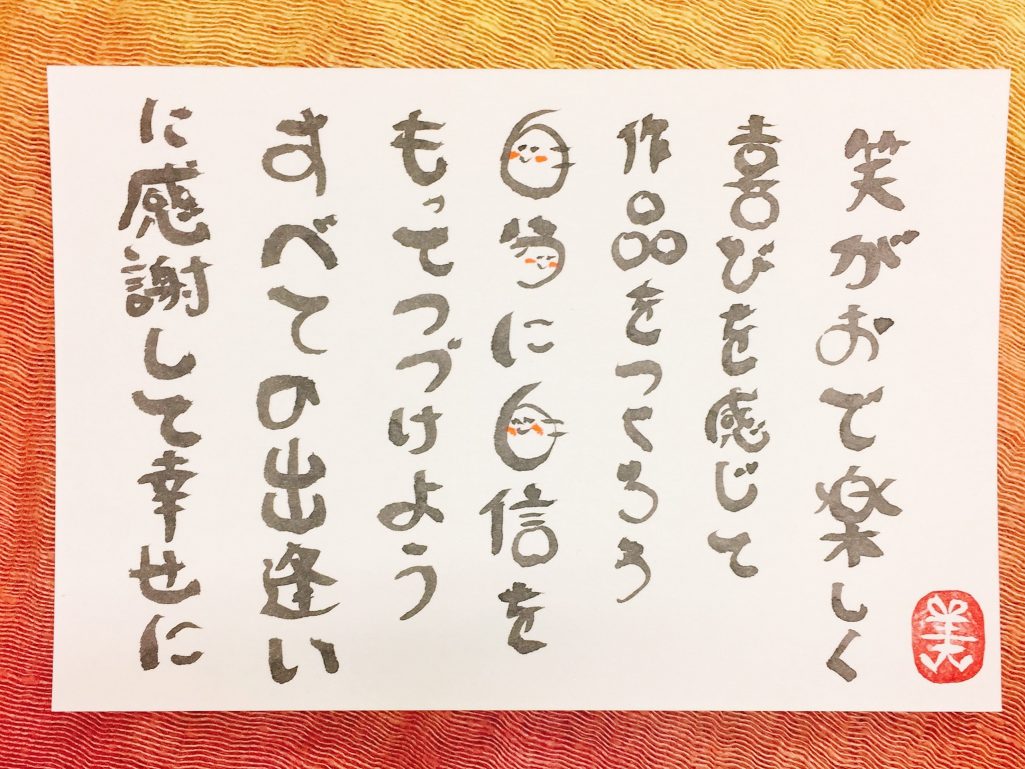 笑がおで楽しく
喜びを感じて
作品をつくろう
自分に自信を
もってつづけよう
すべての出逢い
に感謝して幸せに
美